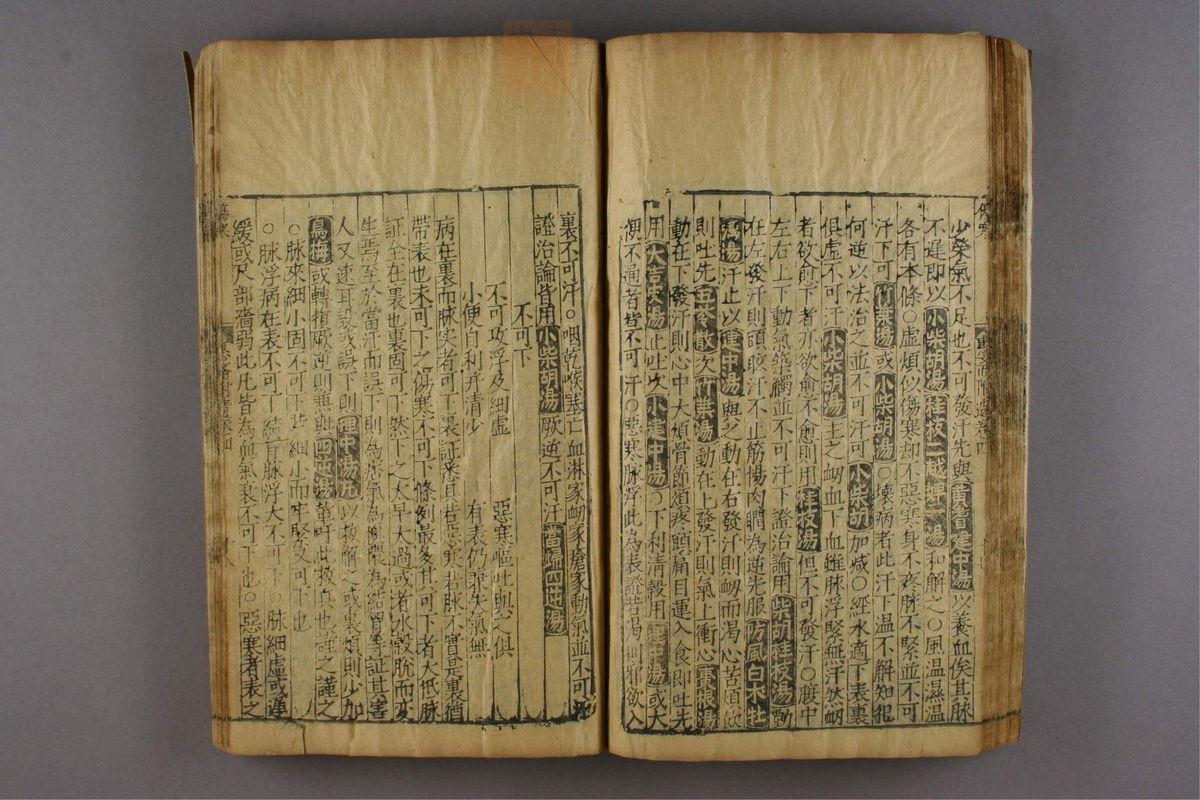 少榮氣不足也不可發汗先與黃耆建中湯以養血俟其脉
不遲即以小柴胡湯桂枝二越婢一湯和解之○風温濕温
各有本條○虛煩似傷寒却不惡寒身不疼脉不緊並不可
汗下可竹葉湯或小柴胡湯○壞病者此汗下温不解知犯
何逆以法治之並不可汗可小柴胡加减○經水適下表裏
俱虛不可汗小柴胡湯主之衂血下血雖脉浮緊無汗然衂
者欲愈下者亦欲愈不愈則用桂枝湯但不可發汗○腹中
左右上下動氣築觸並不可汗下證治論用柴胡桂枝湯動
在左發汗則頭眩汗不止筋惕肉瞤為逆先服防風白术牡
蠣湯汗止以建中湯與之動在右發汗則衂而渴心苦煩飲
則吐先五苓散次竹葉湯動在上發汗則氣上衝心李根湯
動在下發汗則心中大煩骨節煩疼頭痛目運入食即吐先
用大吉次湯止吐次小建中湯○下利清穀用湯或大
便不通者皆不可汗○惡寒脉浮此為表證若渴則邪欲入
裏不可汗○咽乾喉塞亡血淋家衂家瘡家動氣並不可
證治論皆用小柴胡湯厥逆不可汗當歸四逆湯
不可下
不可攻浮及細虛 惡寒嘔吐與不俱
小便自利并清少 有表仍兼失氣無
病在裏而脉实者可下裏証悉具若惡寒若脉不實是裏猶
帶表也未可下之傷寒不可下條例最多其可下者大抵脉
証全在裏也裏固可下然下之太早太過或者水穀脫而変
生焉至於當汗而誤下則為痞氣為為結胷等証其害
人又速耳設或誤下則理中湯丸以救解之或裏煩則少加
烏梅或轉厥逆則與四逆湯輩吁此救其也謹之謹之
○脉來細小固不可下然細小而牢緊又可下也
○脉浮病在表不可下結胷脉浮大不可下○脉細虛或遲
緩或尺部濇弱此凡皆為血氣衰不可下也○惡寒者表之